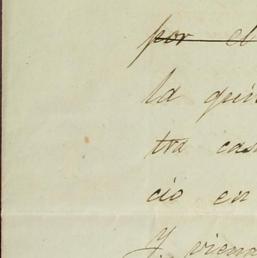 por el
la qui
tra cas
cio en
y vien